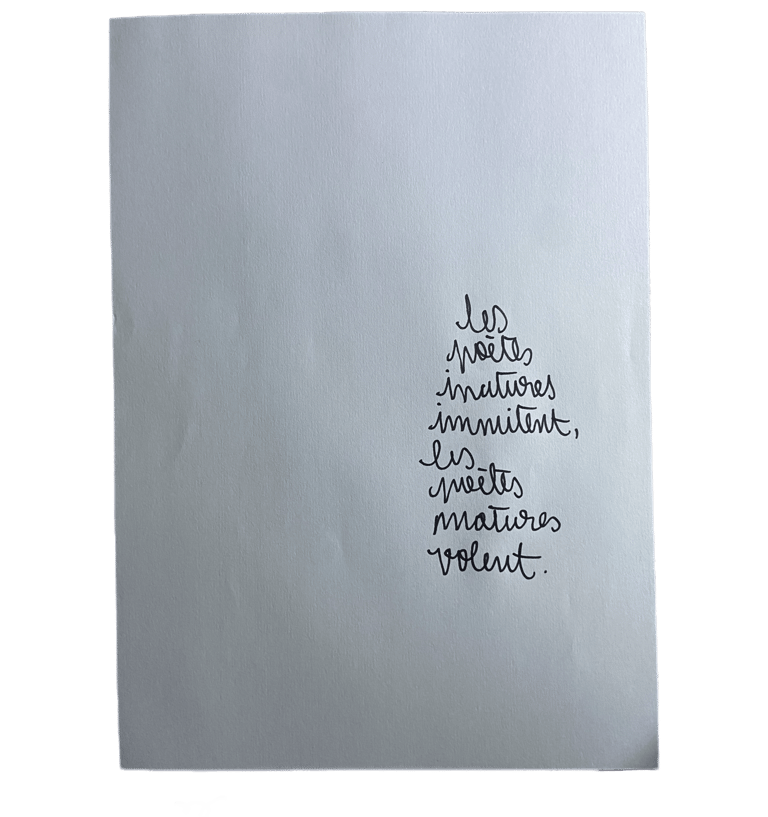 les
poètes
imatures
immitent,
les
poètes
matures
volent.